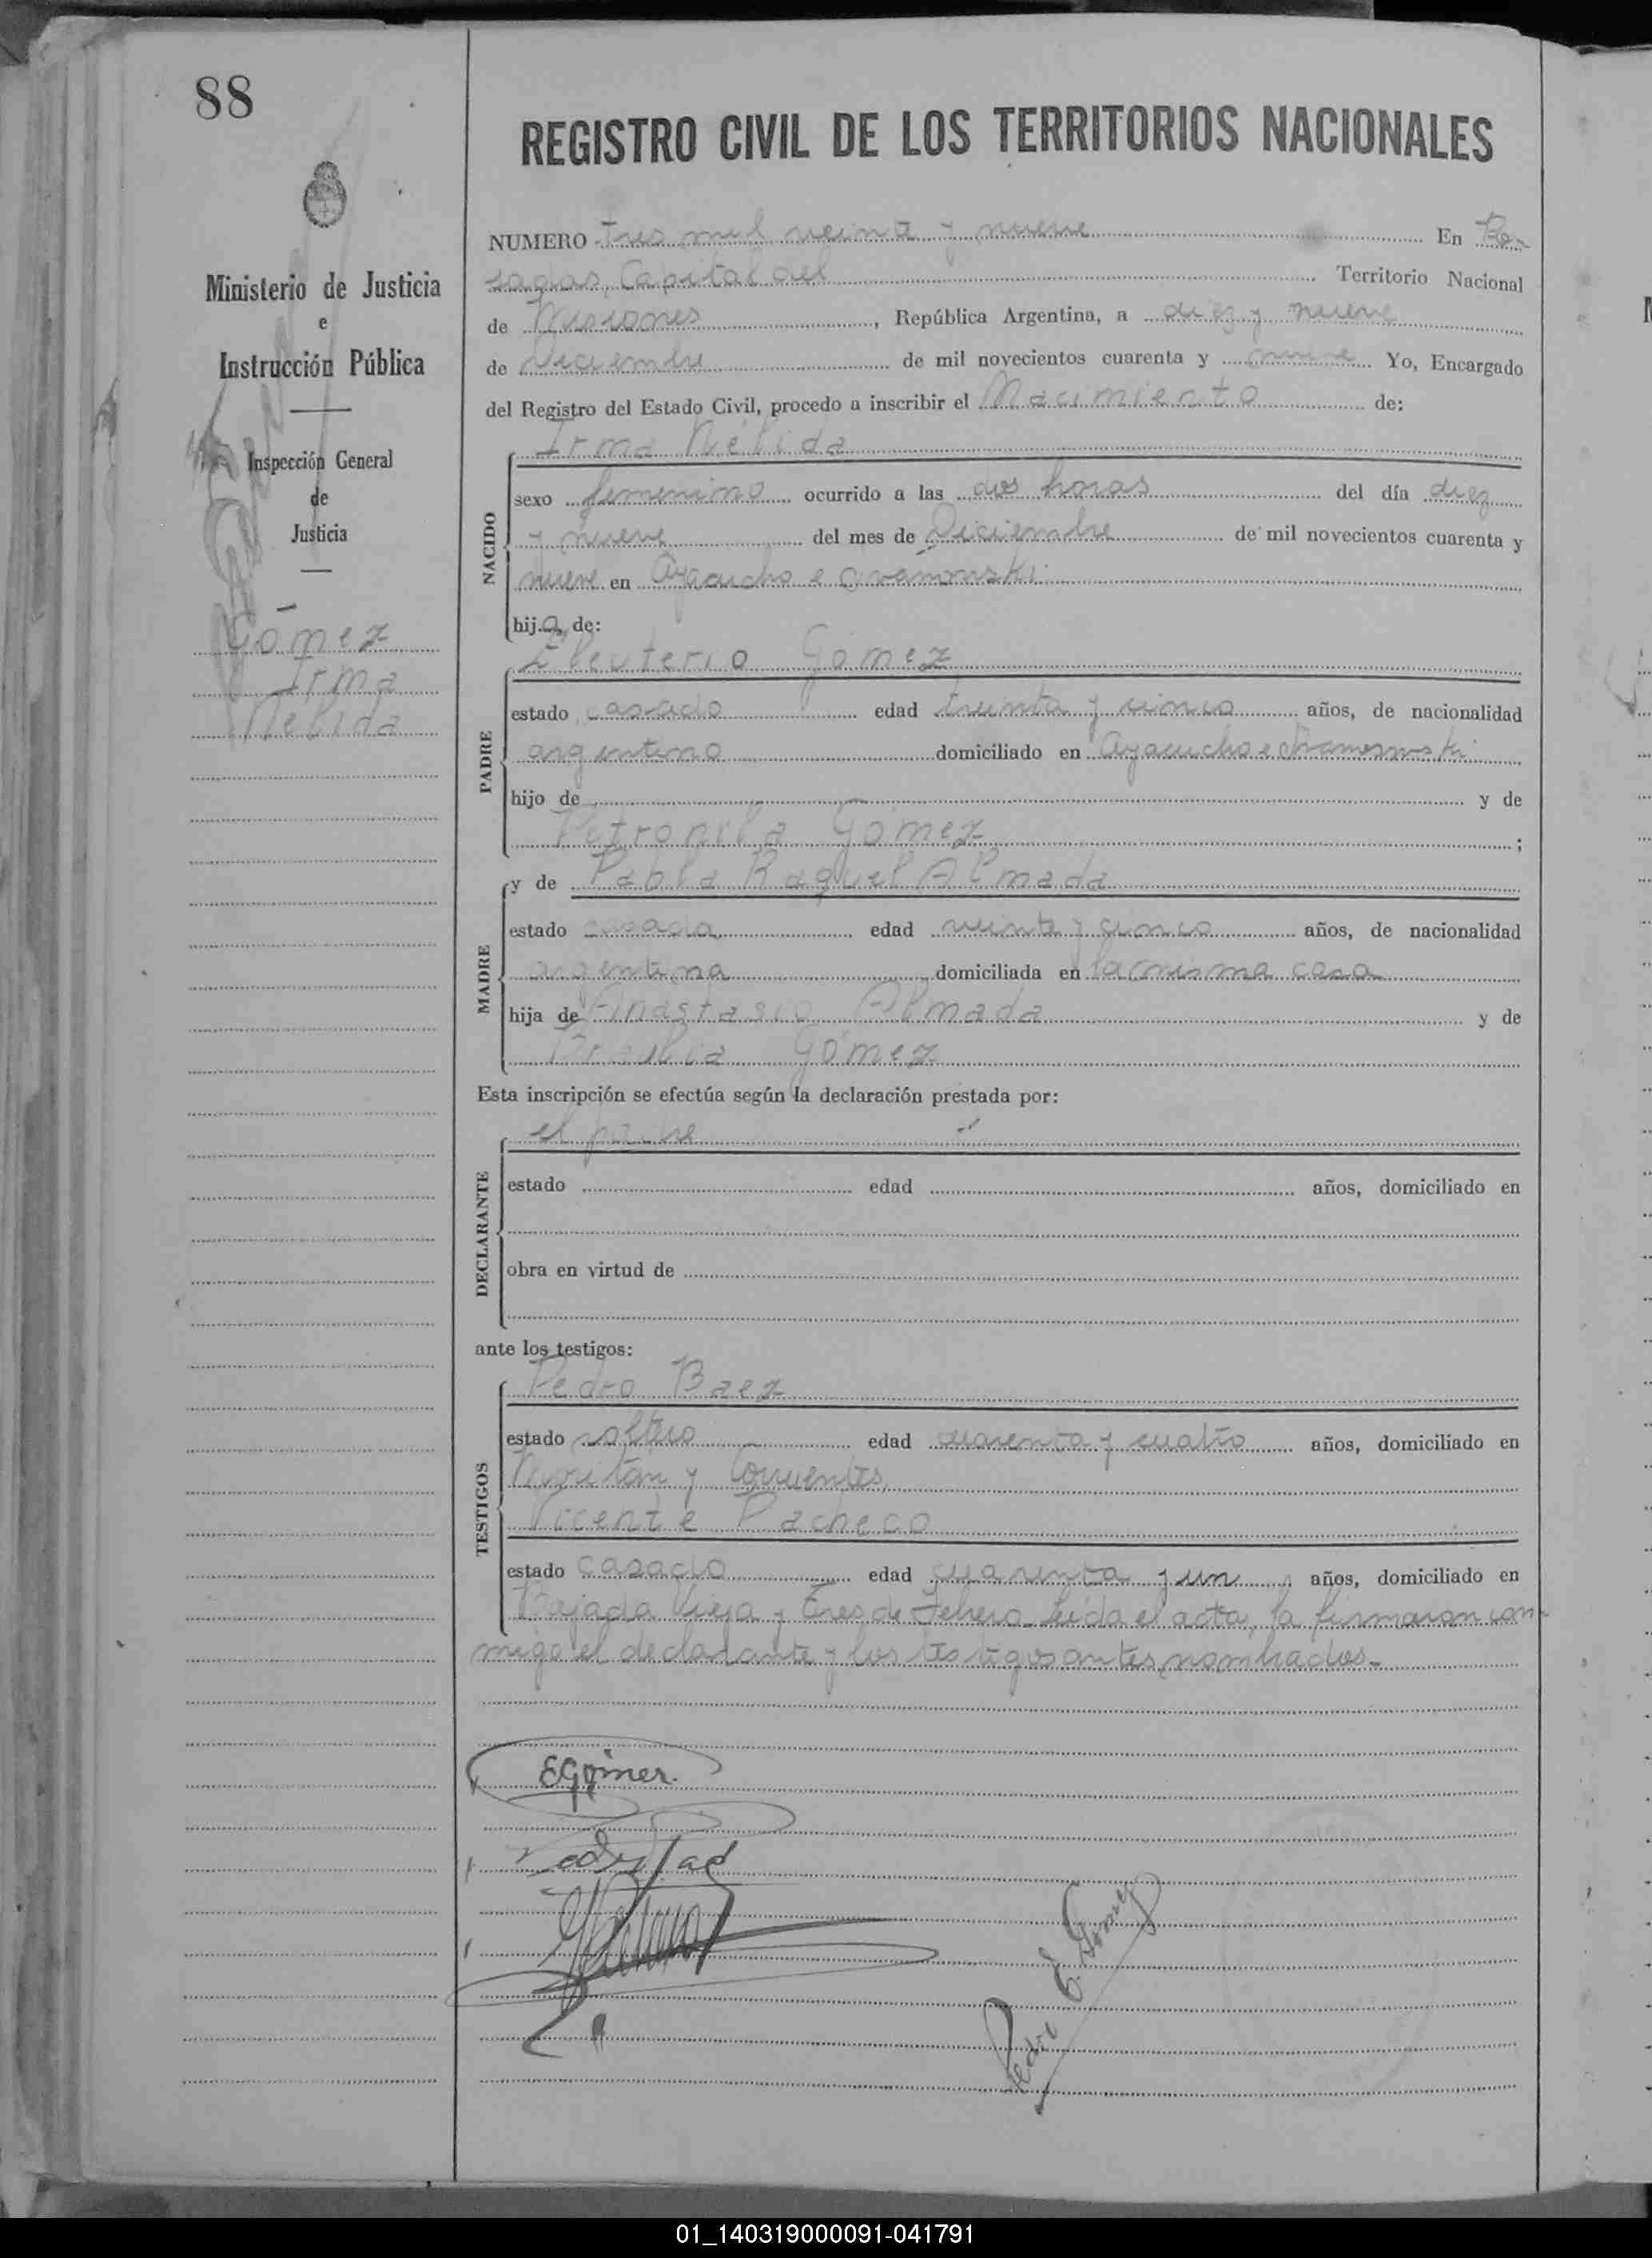 88
REGISTRO CIVIL DE LOS TERRITORIOS NACIONALES
Ministerio de Justicia
e
Instrucción Pública
Inspección General
de
Justicia
Gómez
Irma
Nélida
NUMERO Tres mil veinte y nueve En Po-
sadas, Capital del Territorio Nacional
de Misiones, República Argentina, a diez y nueve
de Diciembre de mil novecientos cuarenta y nueve Yo, Encargado
del Registro del Estado Civil, procedo a inscribir el Nacimiento de:
NACIDO
Irma Nélida
sexo femenino ocurrido a las dos horas del día diez
y nueve del mes de Diciembre de mil novecientos cuarenta y
nueve en Ayacucho e
hija de:
PADRE
Eleuterio Gómez
estado casado edad treinta y cinco años, de nacionalidad
argentino domiciliado en Ayacucho e
hijo de y de
Petronila Gómez ;
MADRE
y de Pabla Raquel Almada
estado casada edad veinte y cinco años, de nacionalidad
argentina domiciliada en la misma casa
hija de Anastasio Almada y de
Gómez
Esta inscripción se efectúa según la declaración prestada por:
DECLARANTE
el padre
estado edad años, domiciliado en
obra en virtud de
ante los testigos:
TESTIGOS
Pedro Baez
estado soltero edad cuarenta y cuatro años, domiciliado en
y Corrientes,
Vicente Pacheco
estado casado edad cuarenta y un años, domiciliado en
Bajada Vieja y Tres de Febrero. Leída el acta, la firmaron con-
migo el declarante y los testigos antes nombrados.-
EGómez.
Pedro E. Gómez
01_140319000091-041791